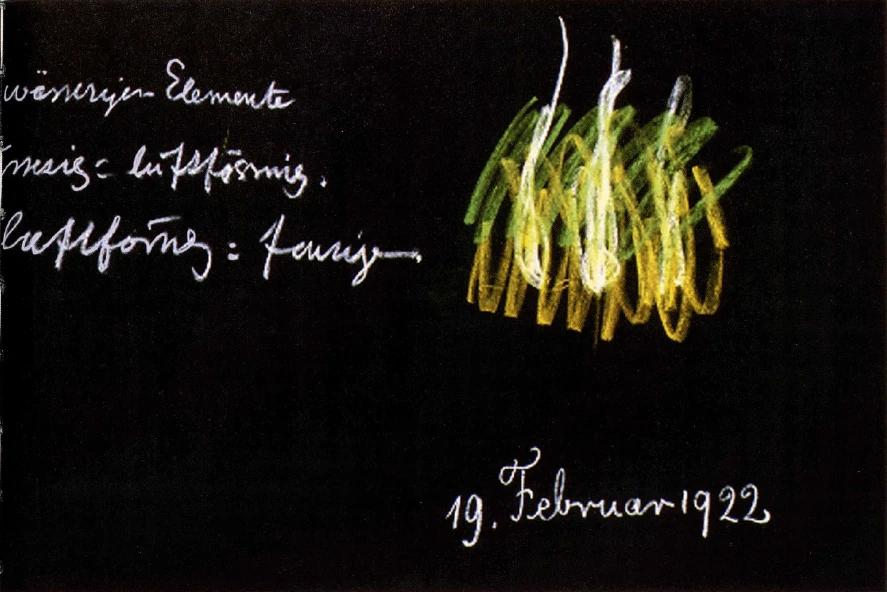 wässerigen Elemente
= luftförmig.
luftförmig : feurig.
19. Februar 1922